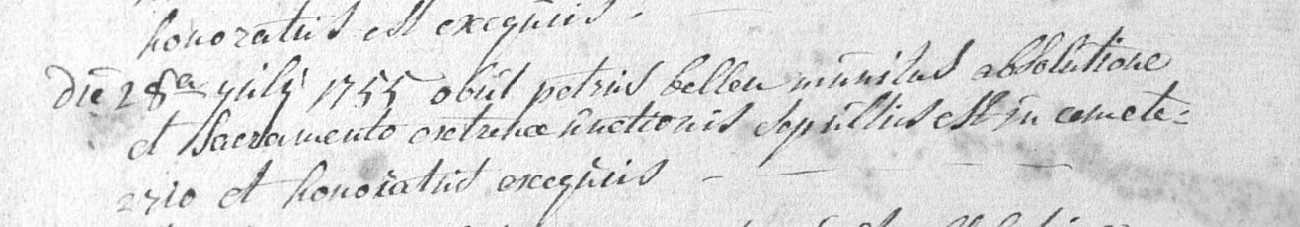 honoratus est exequiis.
Die 28a julij 1755 obiit petrus belleu munitus absolutione
et sacramento extremae unctionis sepultus est in cemete=
rio et honoratus exequiis